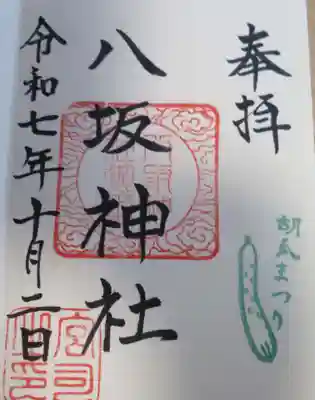 奉拝
胡瓜まつり
八坂神社
令和七年十月二日